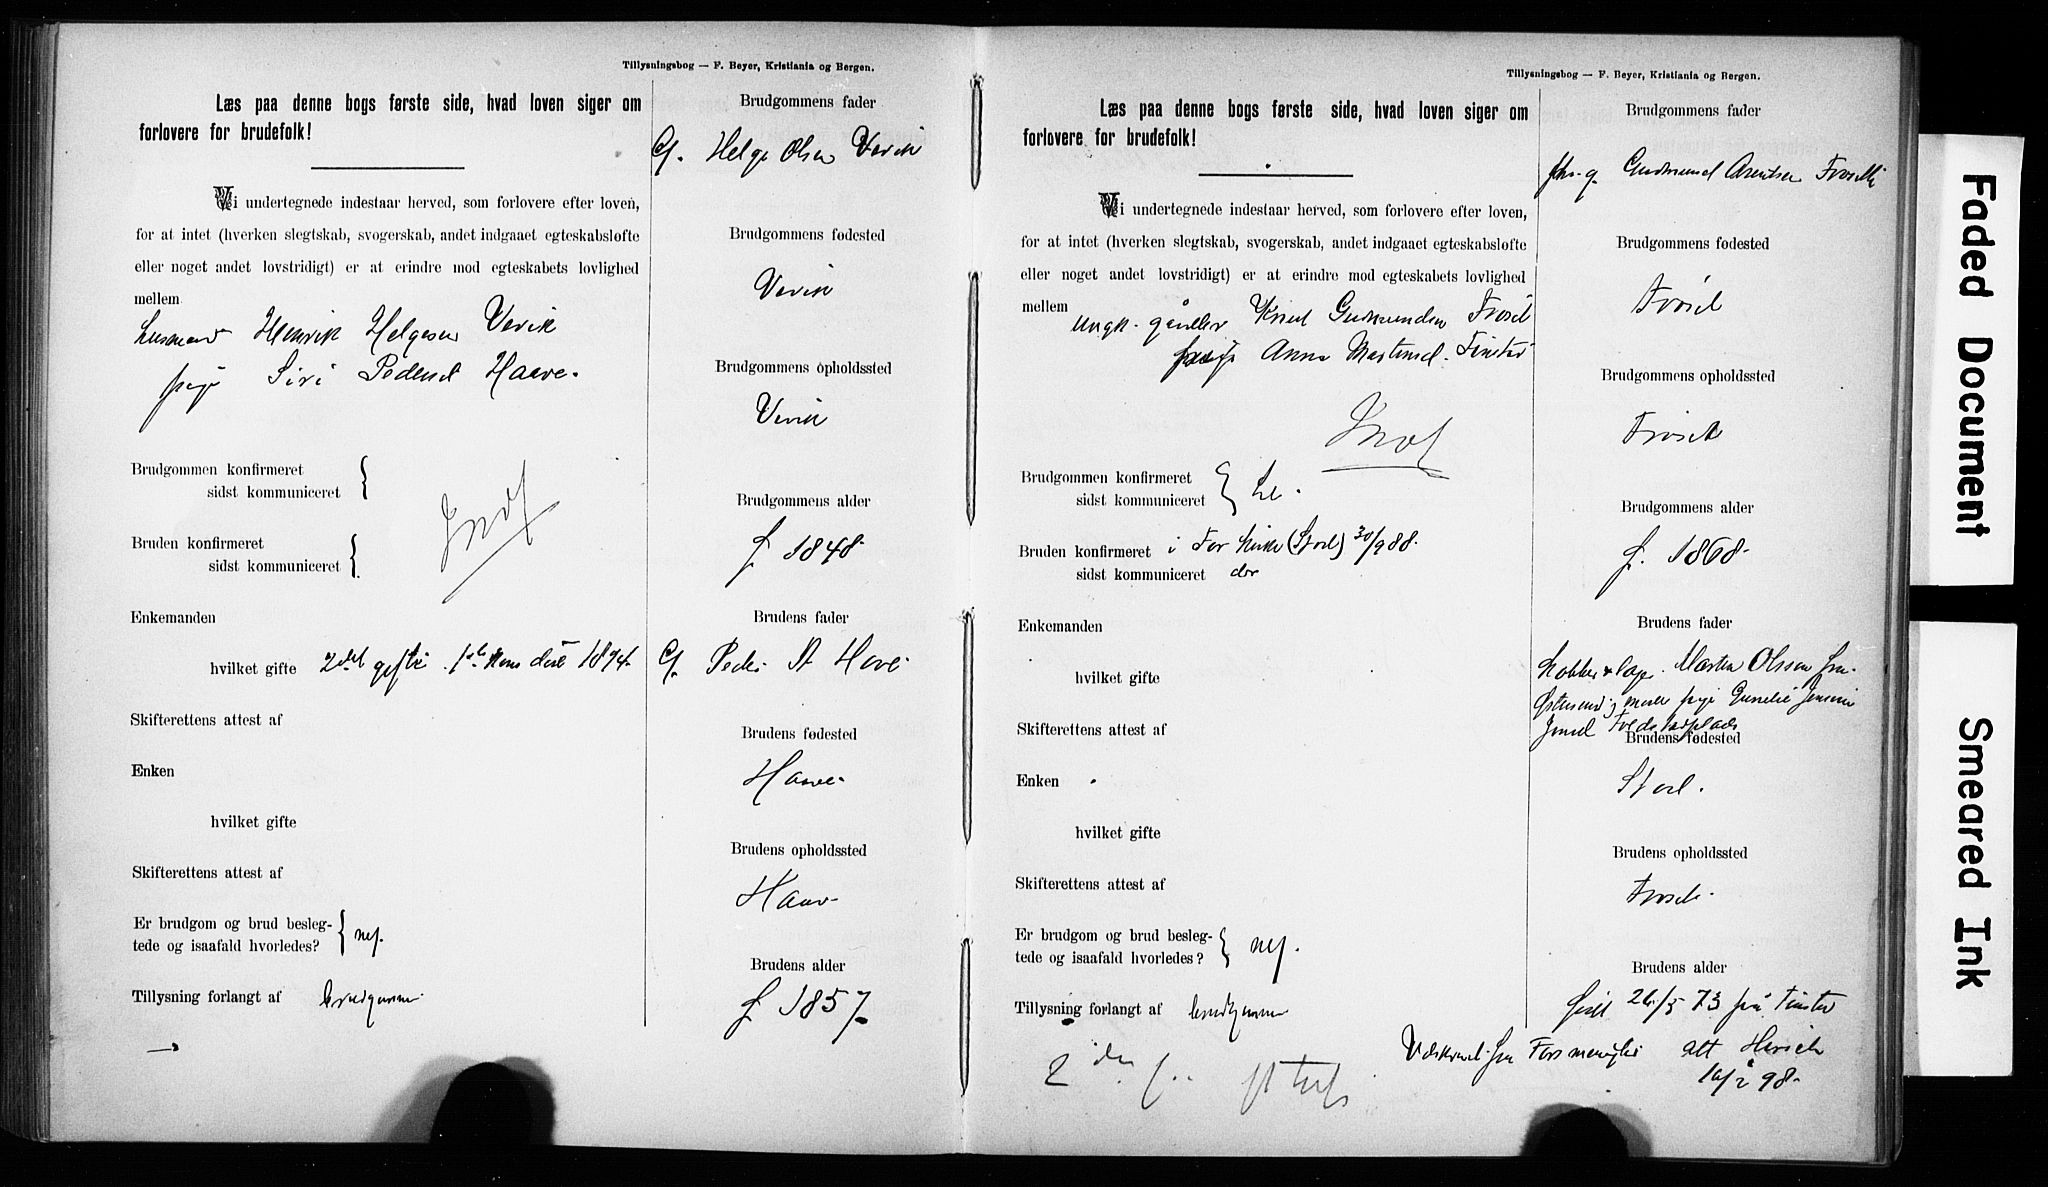 Tillysningsbog — F. Beyer, Kristiania og Bergen.
Læs paa denne bogs første side, hvad loven siger om
forlovere for brudefolk!
Vi undertegnede indestaar herved, som forlovere efter loven,
for at intet (hverken slegtskab, svogerskab, andet indgaaet egteskabsløfte
eller noget andet lovstridigt) er at erindre mod egteskabets lovlighed
mellem
Henrik Helgesen Vevik
pige Siri Pedersd Haave.
Brudgommen konfirmeret
sidst kommuniceret
Bruden konfirmeret
sidst kommuniceret
Enkemanden
hvilket gifte 2det gifte. 1ste kone død 1894.
Skifterettens attest af
Enken
hvilket gifte
Skifterettens attest af
Er brudgom og brud besleg-
tede og isaafald hvorledes? nej.
Tillysning forlangt af brudgommen
Brudgommens fader
G. Helge Olsen Vevik
Brudgommens fødested
Vevik
Brudgommens opholdssted
Vevik
Brudgommens alder
f. 1848.
Brudens fader
G. Peder Haave
Brudens fødested
Haave
Brudens opholdssted
Haave
Brudens alder
f. 1857.
Tillysningsbog — F. Beyer, Kristiania og Bergen.
Læs paa denne bogs første side, hvad loven siger om
forlovere for brudefolk!
Vi undertegnede indestaar herved, som forlovere efter loven,
for at intet (hverken slegtskab, svogerskab, andet indgaaet egteskabsløfte
eller noget andet lovstridigt) er at erindre mod egteskabets lovlighed
mellem Ungk. Knut Gudmundsen Frøseth
pige Anna Martinsd. Finstad
Brudgommen konfirmeret
sidst kommuniceret
Bruden konfirmeret i For kirke (Stod) 30/9 88.
sidst kommuniceret
Enkemanden
hvilket gifte
Skifterettens attest af
Enken
hvilket gifte
Skifterettens attest af
Er brudgom og brud besleg-
tede og isaafald hvorledes? nej.
Tillysning forlangt af brudgommen
Brudgommens fader
Gudmund Arentsen Frøseth
Brudgommens fødested
Frøset
Brudgommens opholdssted
Frøset
Brudgommens alder
f. 1868.
Brudens fader
Martin Olsson fra
pige
Brudens fødested
Stod.
Brudens opholdssted
Frøset.
Brudens alder
født 26/5 73 på Finstad
fra Fors att
98.
Faded Document
Smeared Ink